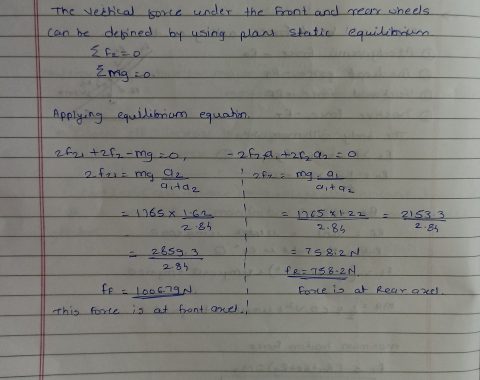 The vertical force under the front and rear wheels
can be defined by using plane static equilibrium
Σ Fz = 0
Σ mg = 0
Applying equilibrium equation.
2Fz1 + 2Fz - mg = 0, - 2Fz1 a1 + 2Fz a2 = 0
2Fz1 = mg a2 / a1+a2 2Fz = mg. a1 / a1+a2
= 1765 x 1.62 / 2.84 = 1765 x 1.22 / 2.84 = 2153.3 / 2.84
= 2859.3 / 2.84 = 758.2 N
FR = 758.2N
FF = 1006.79N Force is at Rear axel.
This Force is at front axel.